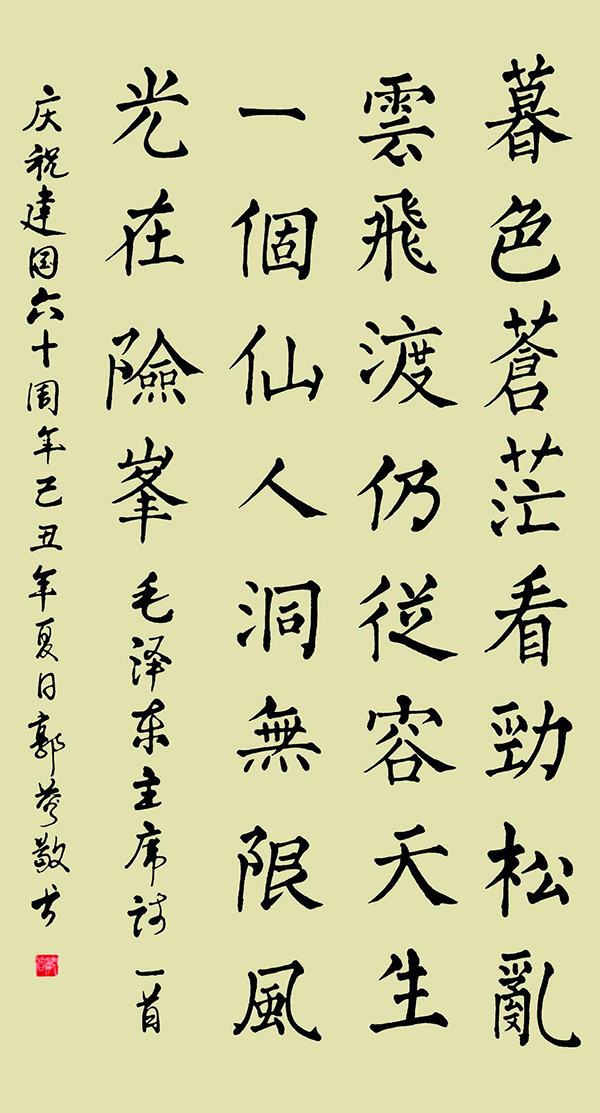 暮色蒼茫看勁松亂
雲飛渡仍從容天生
一個仙人洞無限風
光在險峯毛泽东主席诗一首
庆祝建国六十周年己丑年夏日郭敬书